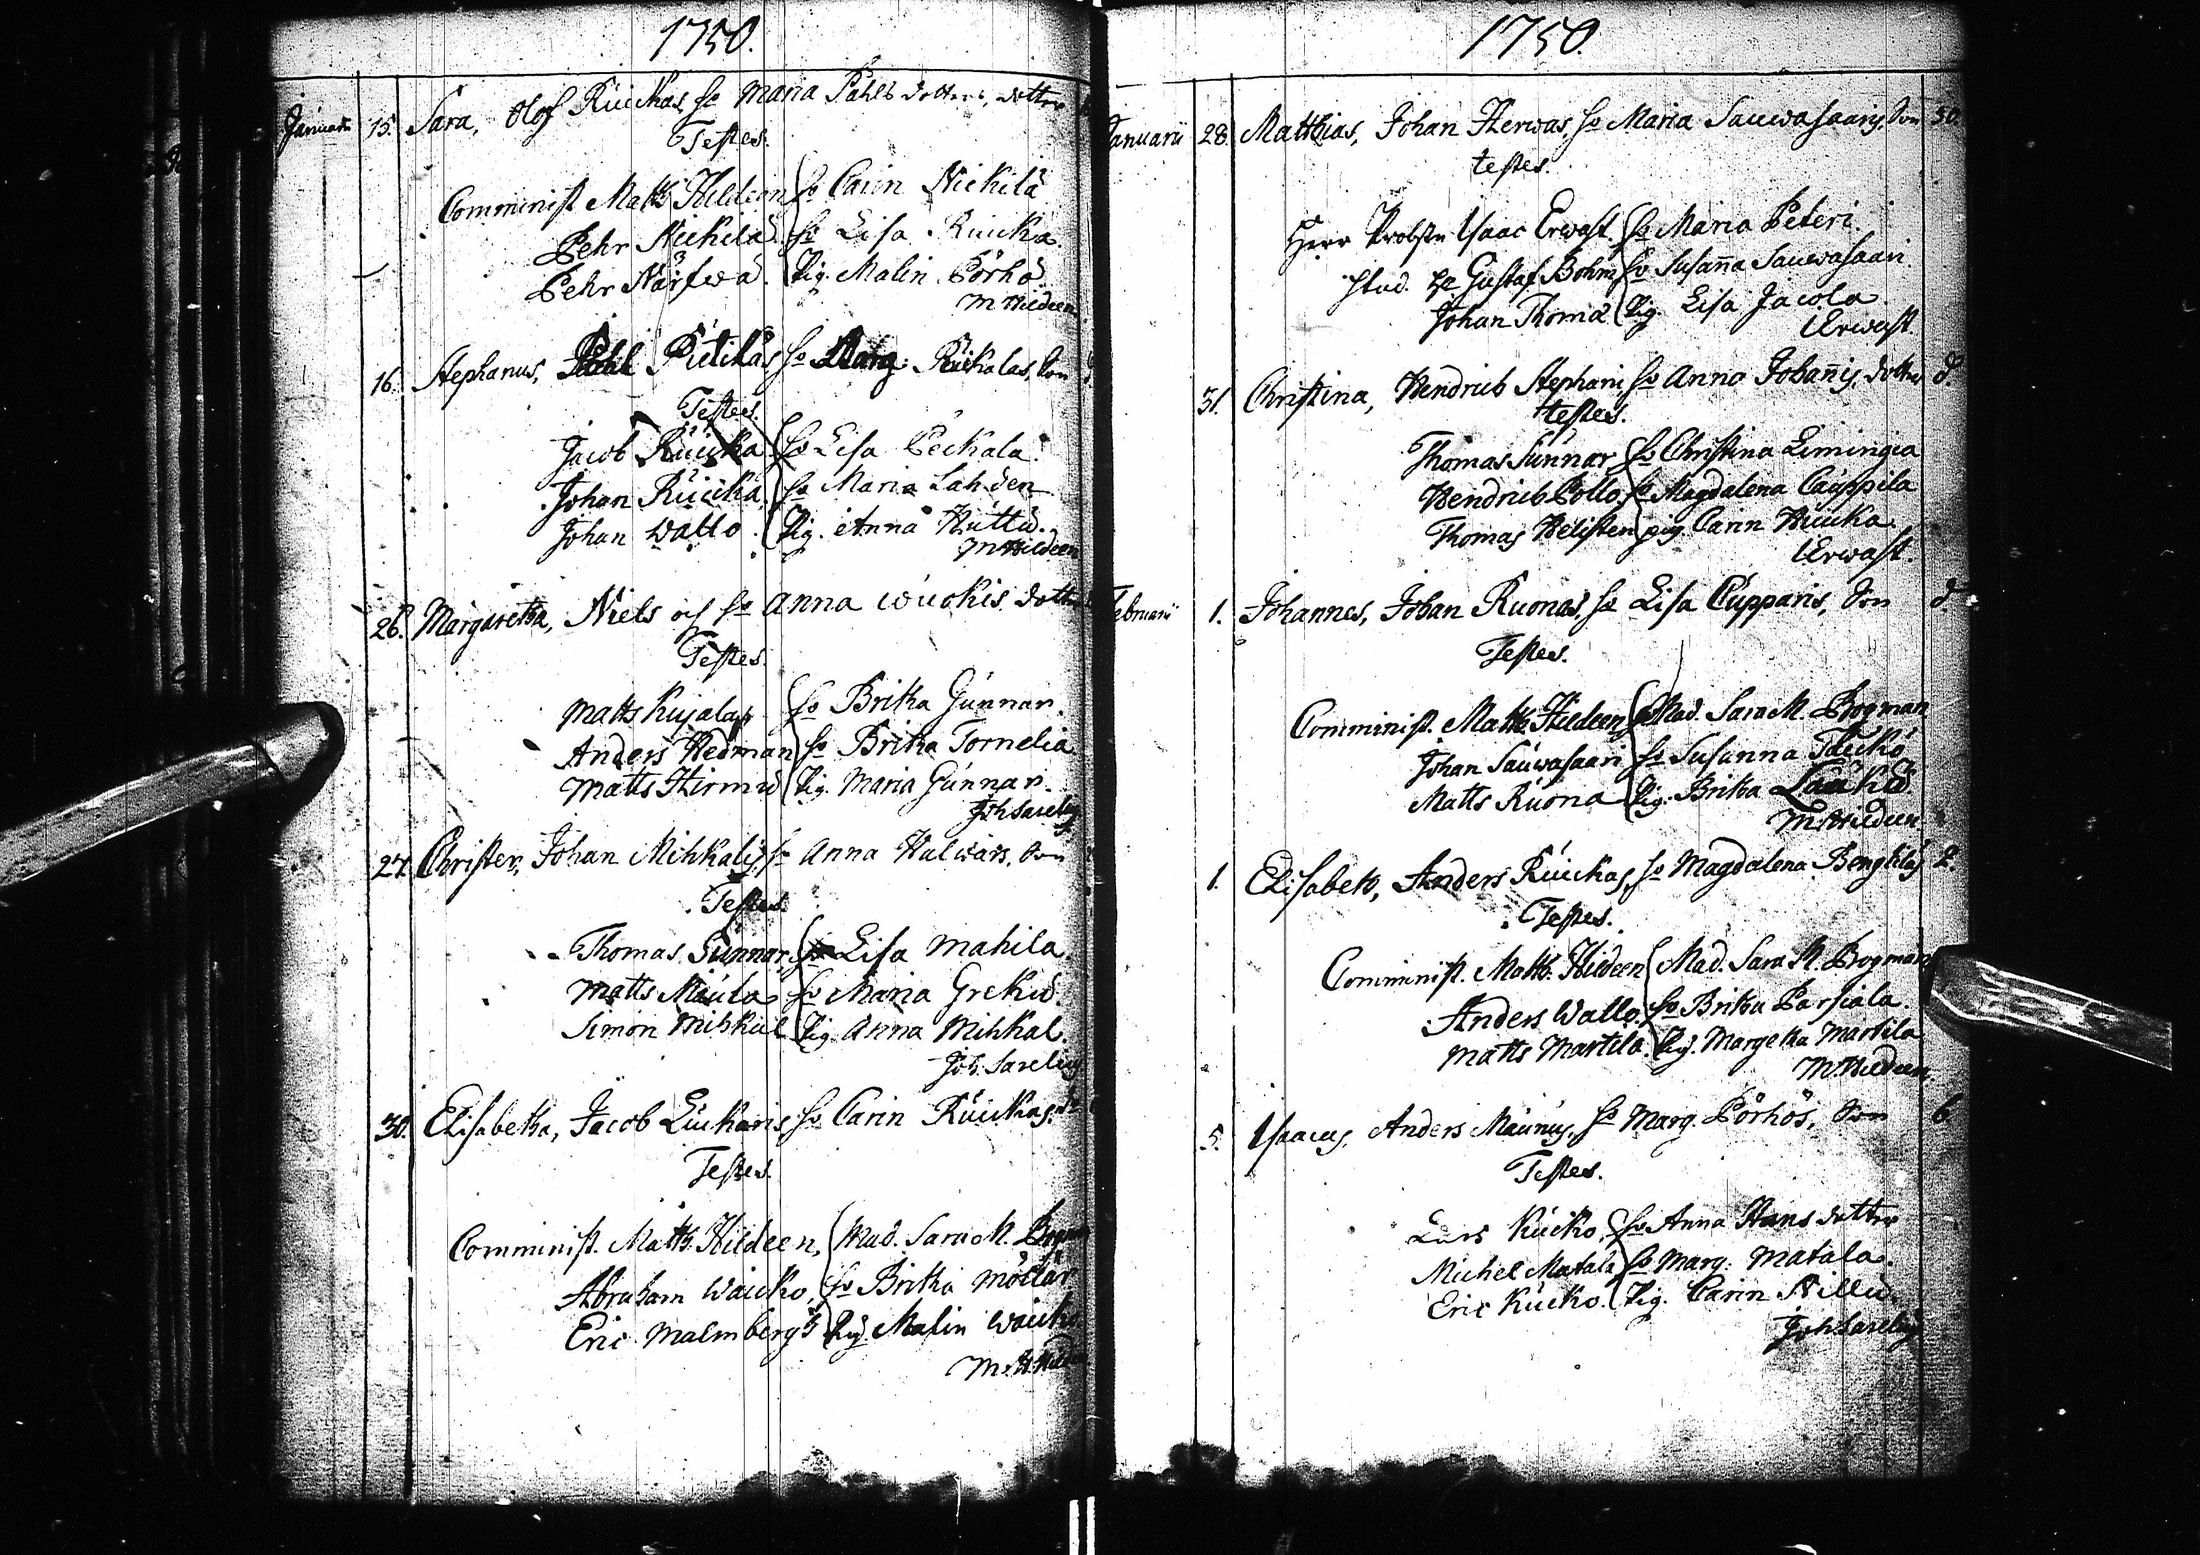 1750.
Januarii 15. Sara, Olof Ruickas, ho Maria Påhls dotters, dotter
Testes.
Comminist. Matth. Hildeen ho Carin Nickilä
Pehr Nickilä. ho Lisa Ruicka.
Pehr Närfwä. Pig. Malin Pörhö.
M Hildeen
16. Stephanus, Påhl Pietilas ho Marg. Ruikalas, Son
Testes.
Jacob Ruicka ho Lisa Peckala
Johan Ruicka, ho Maria Lahden
Johan Wallo. Pig. Anna Huttu.
M Hildeen
26. Margaretha, Niels och ho Anna Wuokis. dotter
Testes.
Matts Kujala ho Britha Gunnar.
Anders Hedman ho Britha Tornelia.
Matts Hirmu Pig. Maria Gunnari.
Joh Sarelius
27. Christer, Johan Mihkalis, ho Anna Halwars, Son
Testes.
Thomas Gunnar, Lisa Mahila.
Matts Maula ho Maria Greku.
Simon Mihkul Pig. Anna Mihkal.
Joh. Sarelius
30. Elisabetha, Jacob Liukaris ho Carin Ruickas,
Testes.
Comminist. Matth. Hildeen, Mad. Sara M.
Abraham Waicko, ho Britha Möllär
Eric Malmberg Pig. Malin Waicko
M. Hilde
1750.
Januarii 28. Matthias, Johan Herwas, ho Maria Sauwasaaris, Son 30.
testes.
Herr Probsten Isaac Erwast. ho Maria Peteri.
Stud. Hr Gustaf Bohm ho Susanna Sauwasaari.
Johan Thomä Pig. Lisa Jacola
IErwast
31. Christina, Hendrich Stephani, ho Anna Johannis, dotter d.
testes.
Thomas Sunnar ho Christina Limingia
Hendrich Pollo. ho Magdalena Cauppila
Thomas Helisten pig. Carin Huicka.
IErwast.
Februarii 1. Johannes, Johan Ruonas, ho Lisa Cupparis, Son d
Testes.
Comminist. Matth. Hildeen Mad. Sara M. Brogman
Johan Sauwasaari ho Susanna
Matts Ruona Pig. Britha
M. Hildeen
1. Elisabeth, Anders Ruickas, ho Magdalena Bengtilas 2.
Testes.
Comminist. Matth. Hildeen Mad. Sara M. Brogman
Anders Wallo. ho Britha Parsiala.
Matts Martila. Pig. Margetha Martila
M. Hildeen.
5. Isaacus, Anders Maunus, ho Marg. Pörhös, Son 6
Testes.
Lars Kucko, ho Anna Hans dotter
Michel Matala ho Marg. Matala.
Eric Kucko. Pig. Carin Hillu.
Joh Sarelius